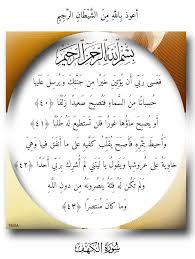 أعوذ بالله من الشيطان الرجيم
بسم الله الرحمن الرحيم
فعسى ربي أن يؤتين خيرا من جنتك ويرسل عليها
حسبانا من السماء فتصبح صعيدا زلقا ﴿٤٠﴾
أو يصبح ماؤها غورا فلن تستطيع له طلبا ﴿٤١﴾
وأحيط بثمره فأصبح يقلب كفيه على ما أنفق فيها وهي
خاوية على عروشها ويقول يا ليتني لم أشرك بربي أحدا ﴿٤٢﴾
ولم تكن له فئة ينصرونه من دون الله
وما كان منتصرا ﴿٤٣﴾
سورة الكهف